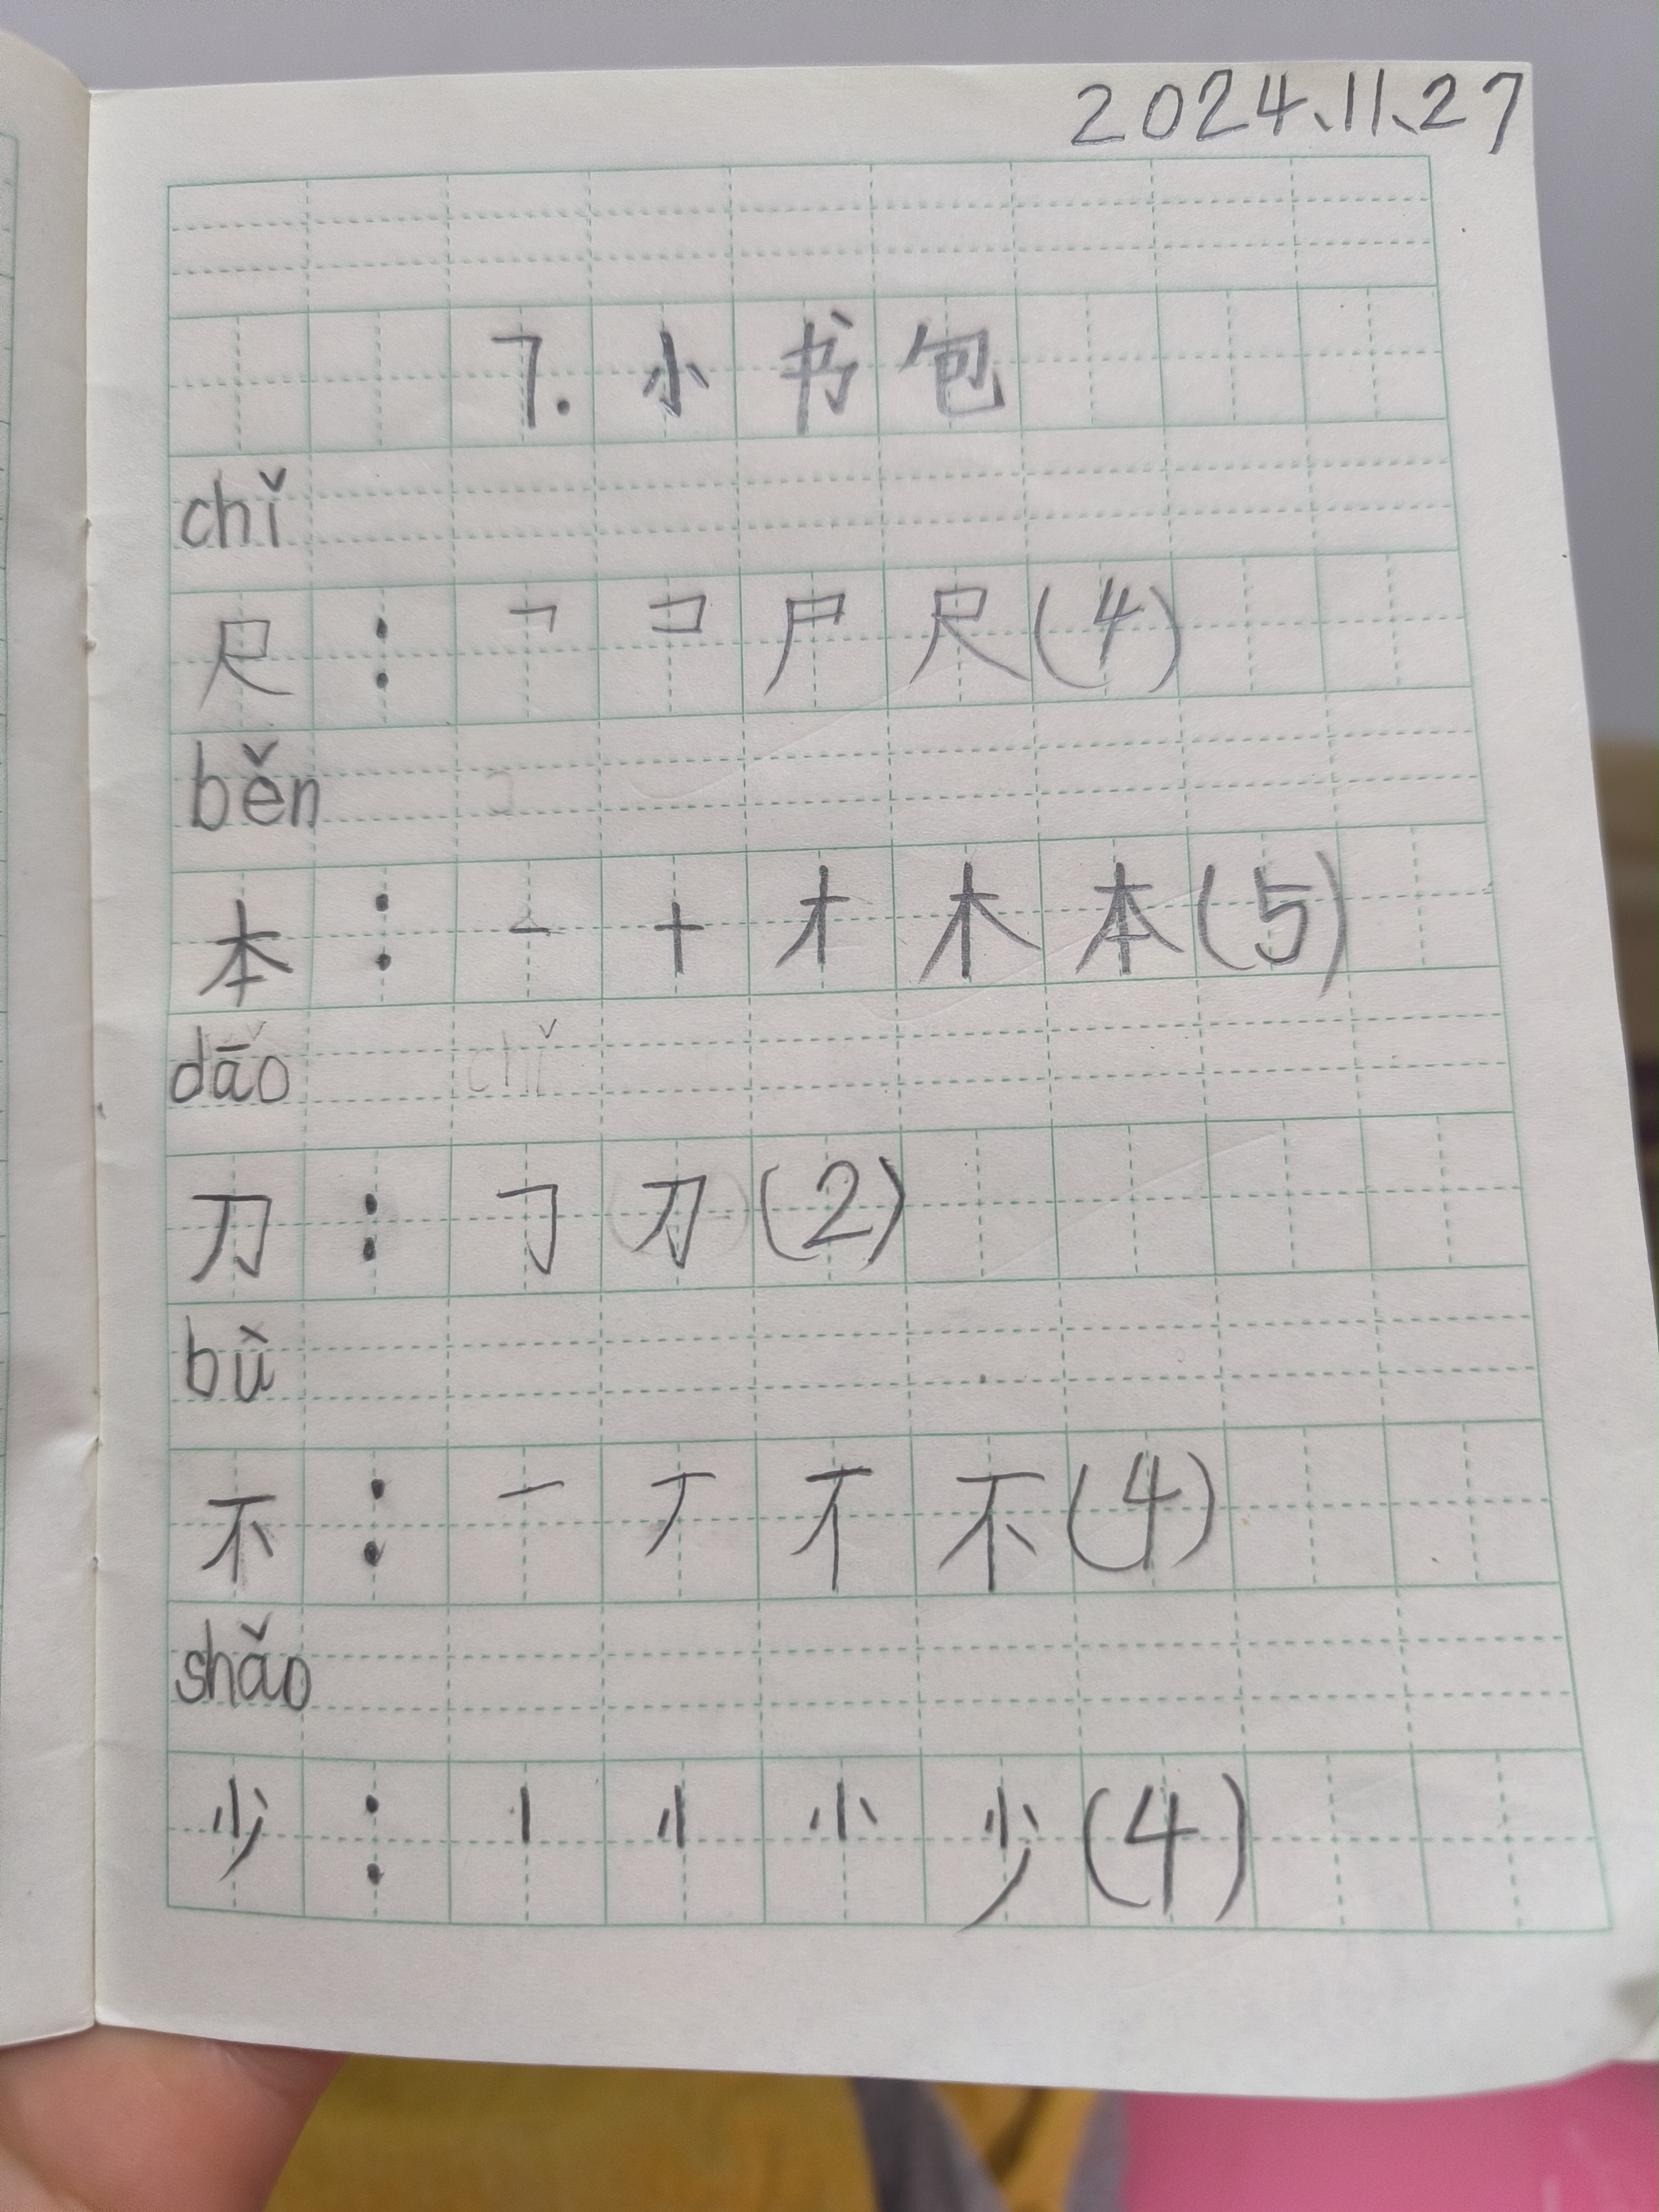 2024.11.27
7.小书包
chǐ
尺：㇕ コ 尸 尺(4)
běn
本：一 十 才 木 本(5)
dāo
刀：𠃌 刀(2)
bù
不：一 丆 不 不(4)
shǎo
少：丨 小 少(4)